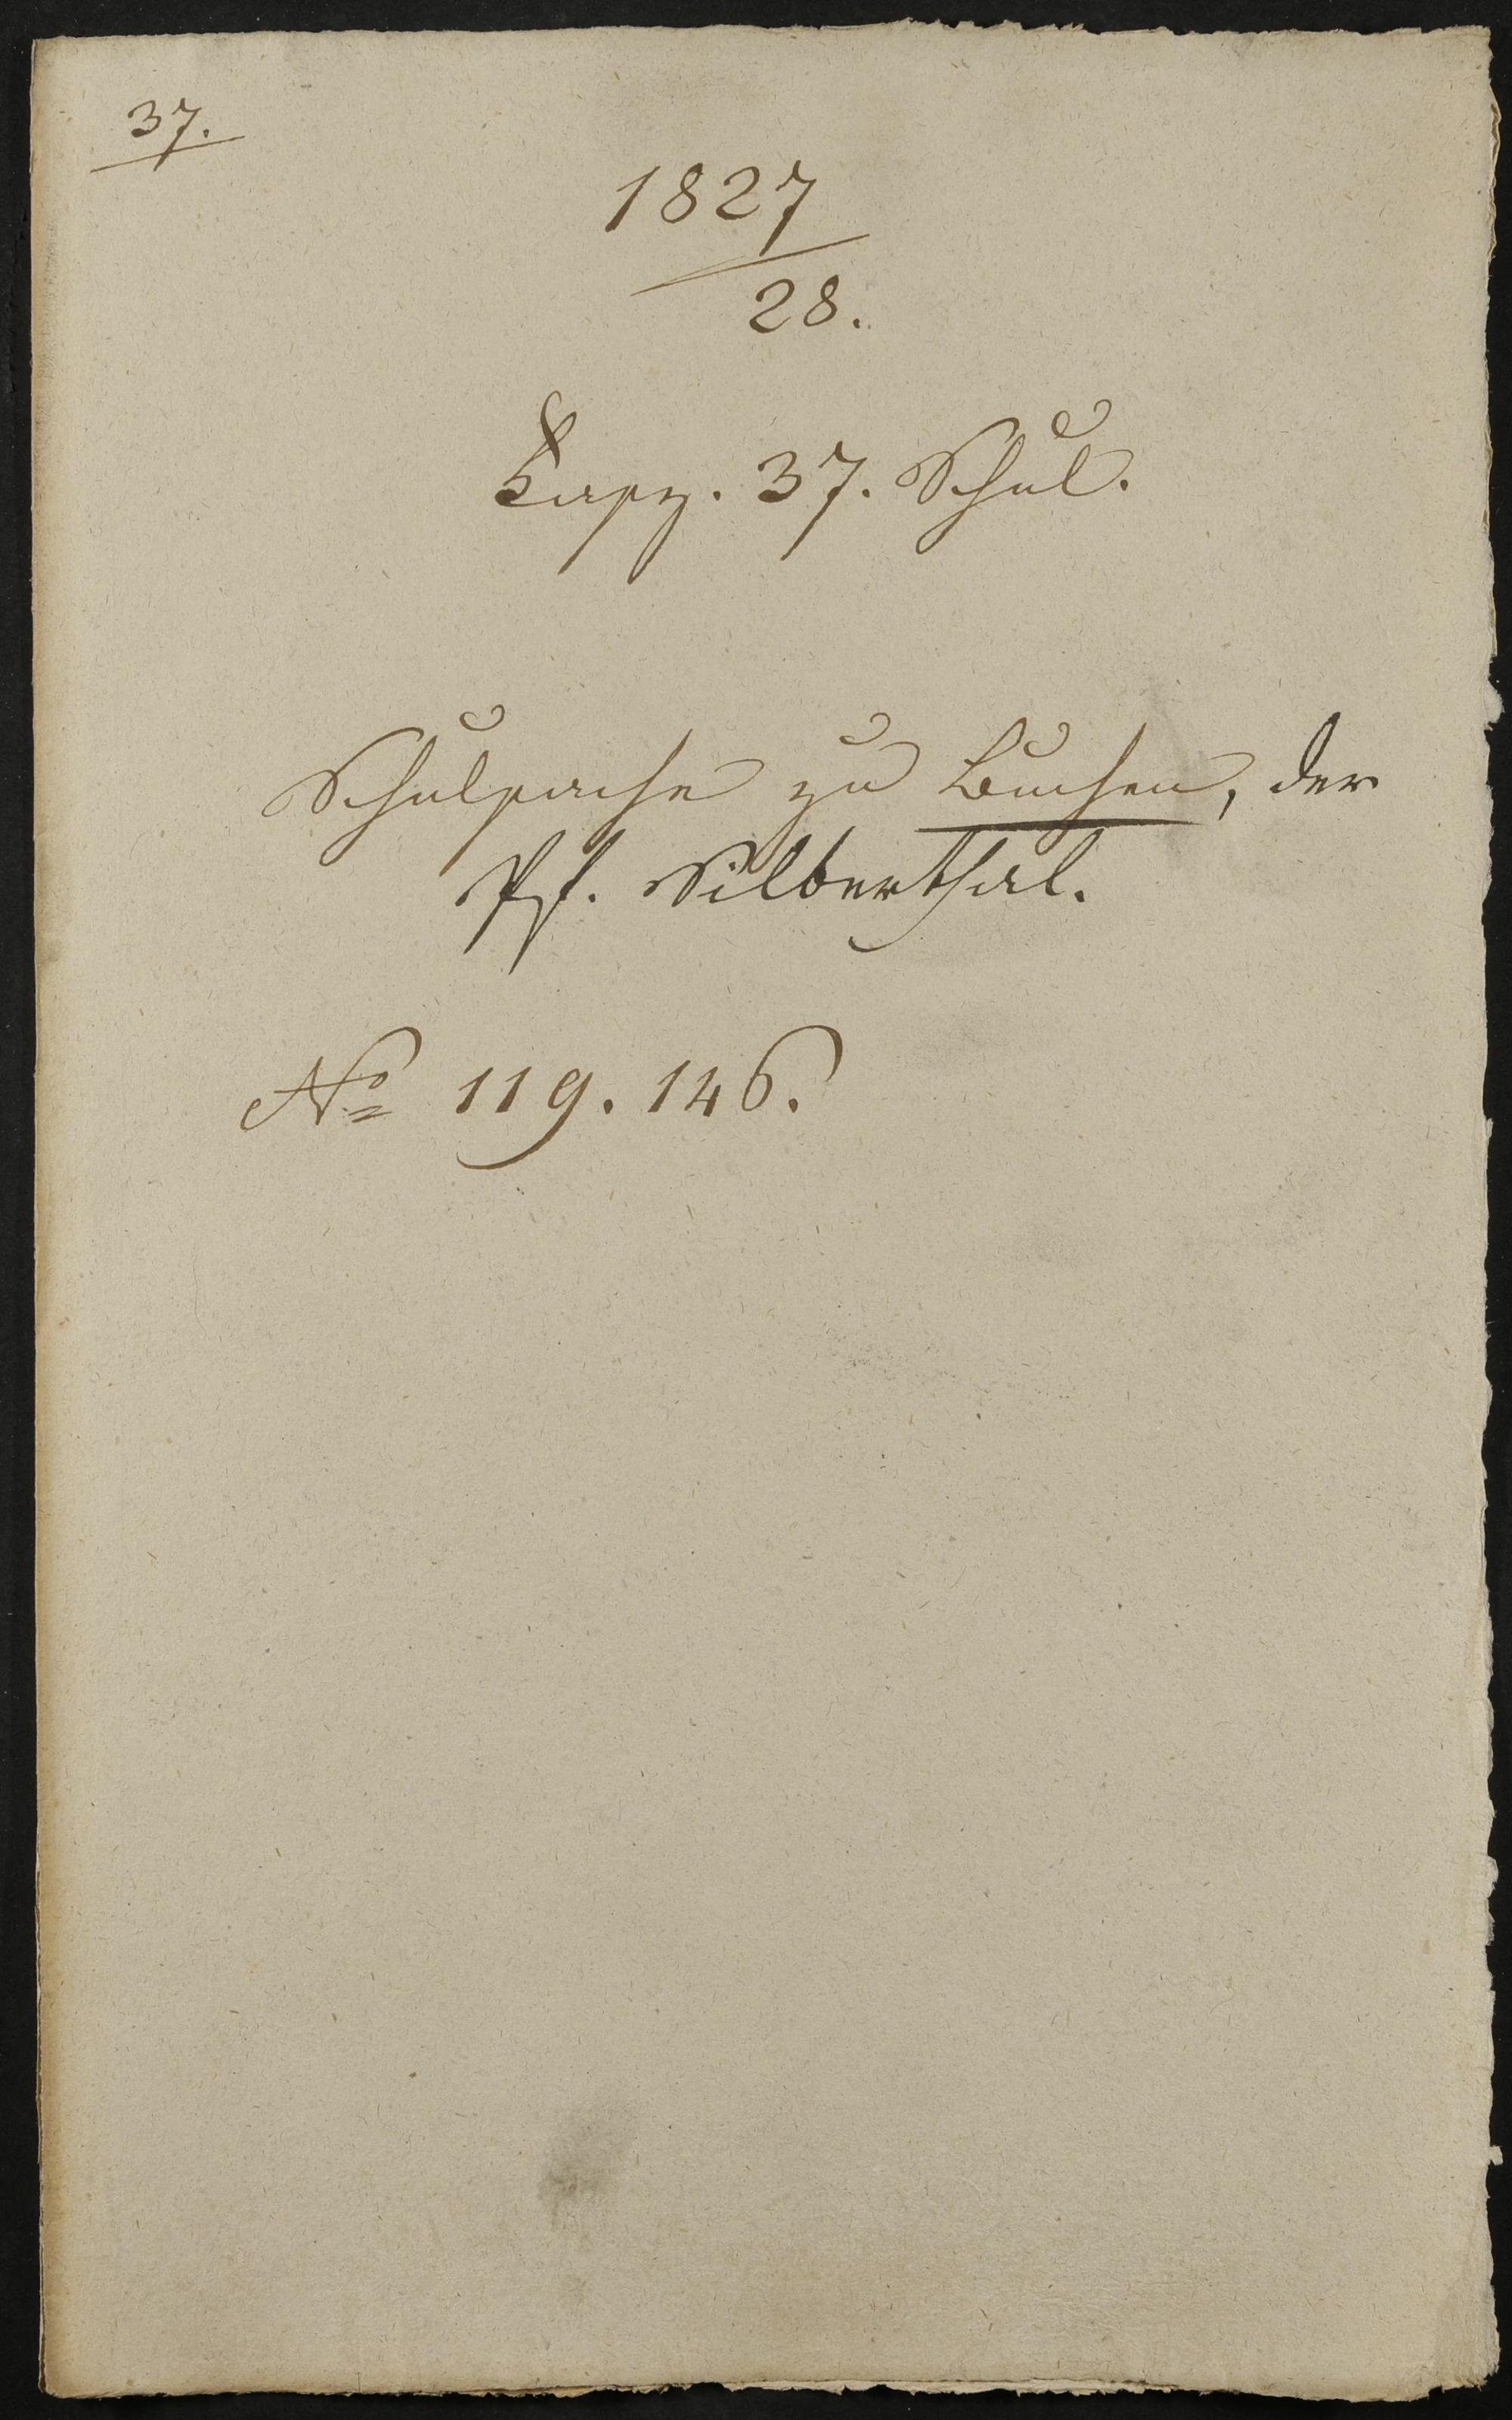 37.
1827
28.
Fasz. 37. Schul.
Schulsache zu Buchen, der
Pf. Silberthal.
No 119. 146.